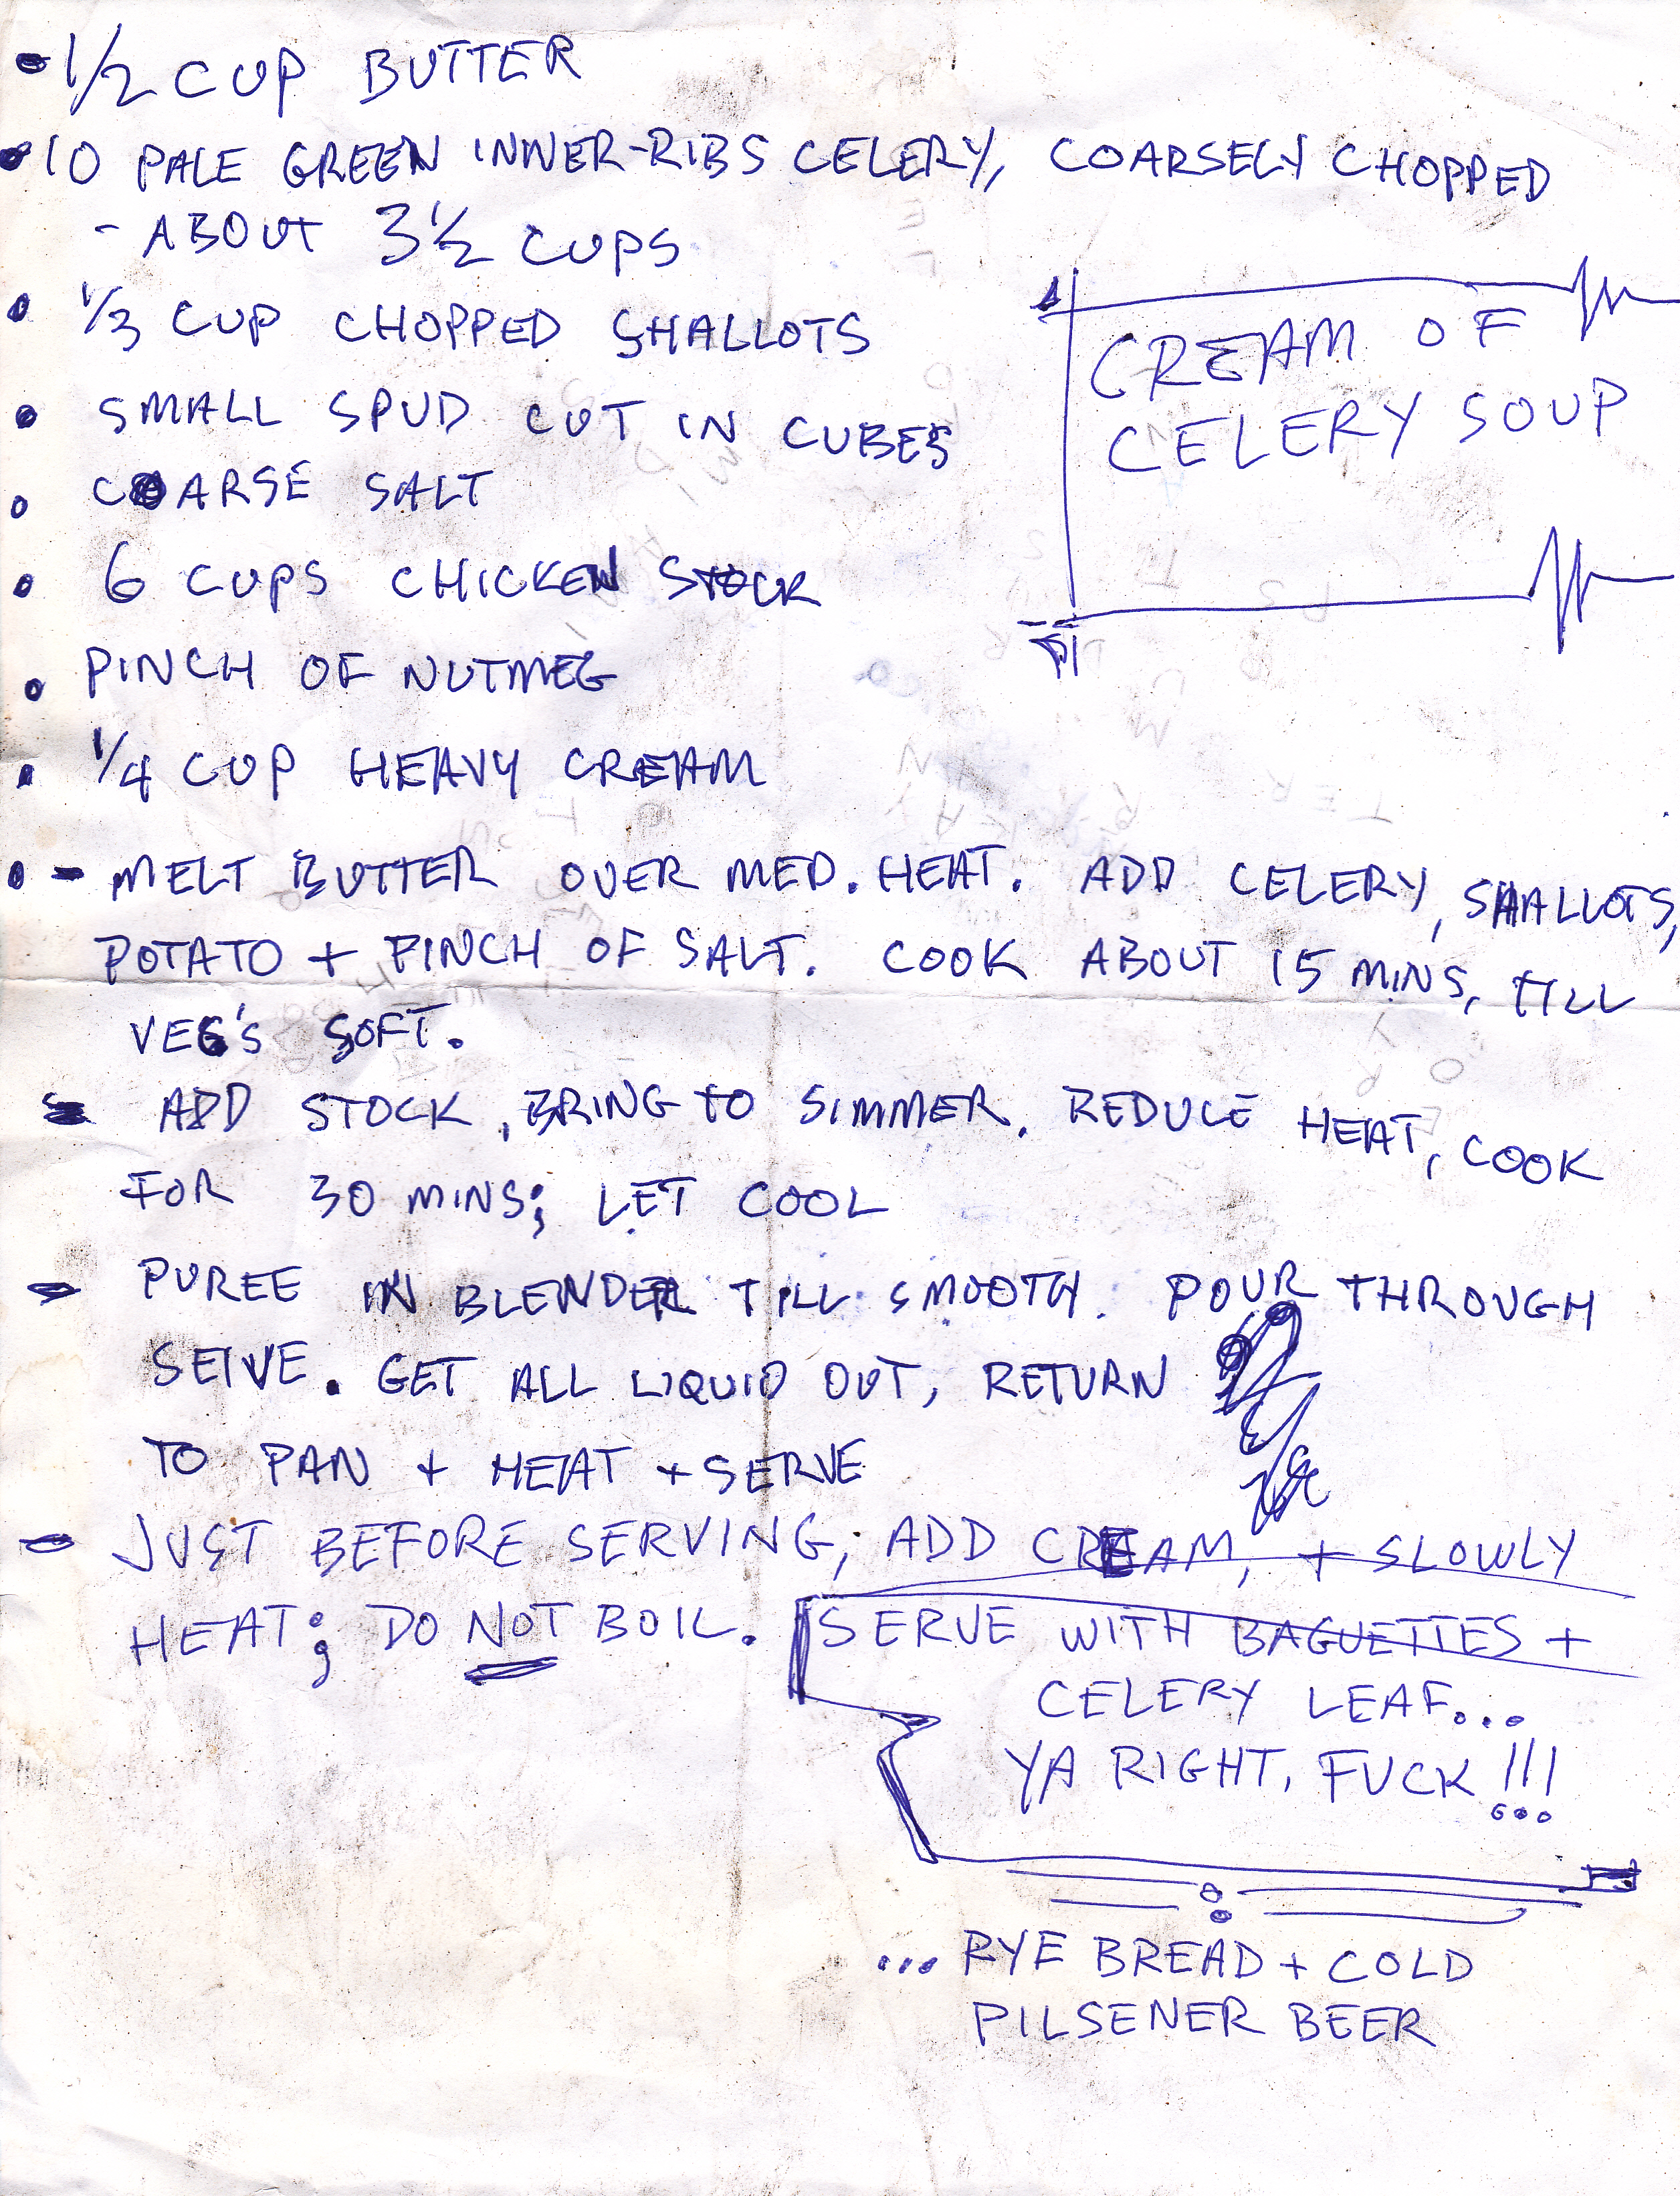 • 1/2 CUP BUTTER
• 10 PALE GREEN INNER-RIBS CELERY, COARSELY CHOPPED
- ABOUT 3 1/2 CUPS
• 1/3 CUP CHOPPED SHALLOTS
• SMALL SPUD CUT IN CUBES
• COARSE SALT
• 6 CUPS CHICKEN STOCK
• PINCH OF NUTMEG
• 1/4 CUP HEAVY CREAM
CREAM OF
CELERY SOUP
• - MELT BUTTER OVER MED. HEAT. ADD CELERY, SHALLOTS,
POTATO + PINCH OF SALT. COOK ABOUT 15 MINS, TILL
VEG'S SOFT.
- ADD STOCK, BRING TO SIMMER. REDUCE HEAT, COOK
FOR 30 MINS; LET COOL
- PUREE IN BLENDER TILL SMOOTH. POUR THROUGH
SEIVE. GET ALL LIQUID OUT, RETURN
TO PAN + HEAT + SERVE
- JUST BEFORE SERVING, ADD CREAM, + SLOWLY
HEAT; DO NOT BOIL. SERVE WITH BAGUETTES +
CELERY LEAF...
YA RIGHT, FUCK!!!
... RYE BREAD + COLD
PILSENER BEER